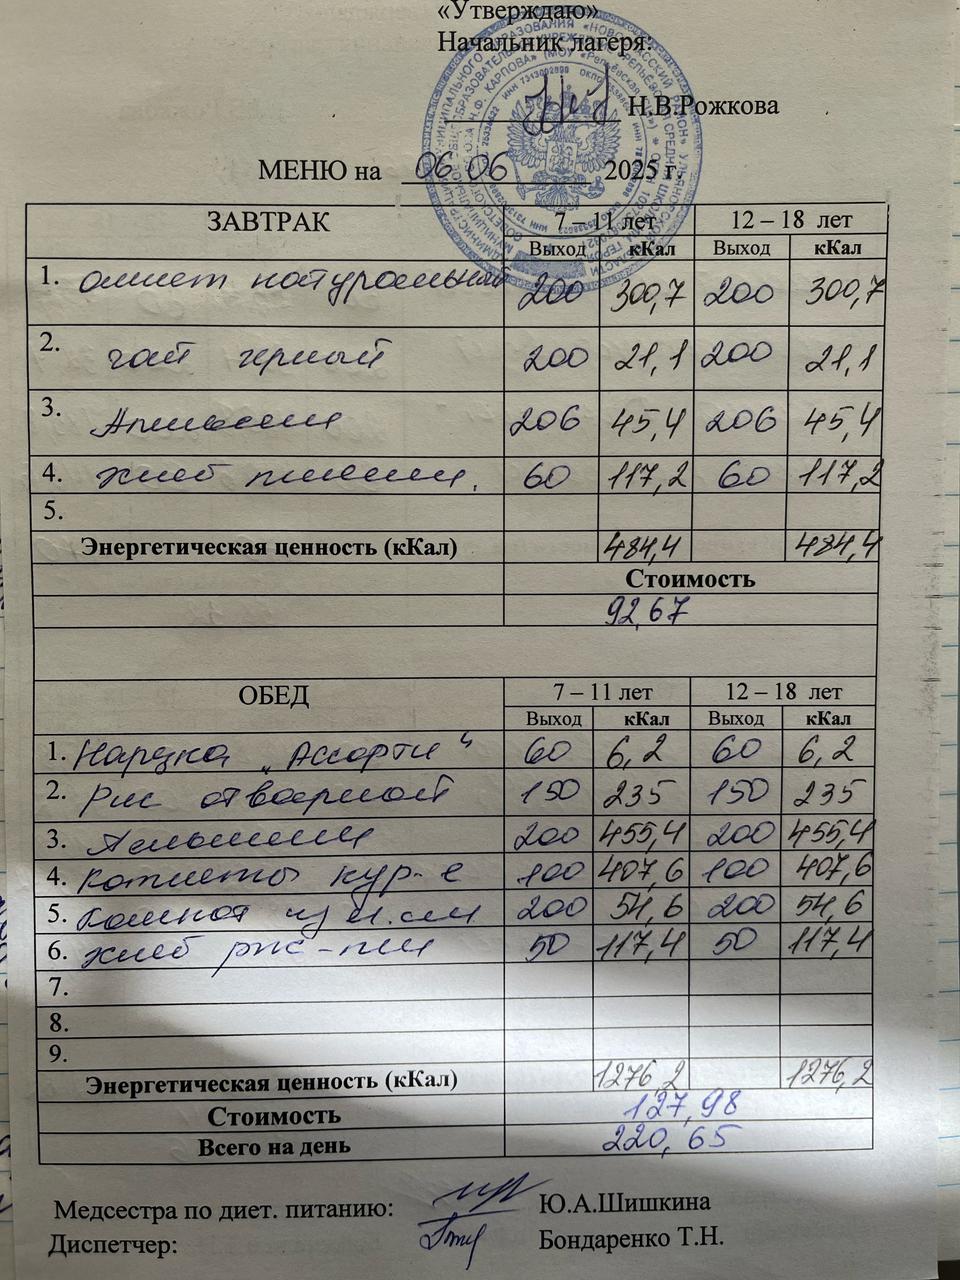 «Утверждаю»
Начальник лагеря:
Н.В.Рожкова
МЕНЮ на 06.06 2025 г.
ЗАВТРАК 7 – 11 лет 12 – 18 лет
Выход кКал Выход кКал
1. Омлет натуральный 200 300,7 200 300,7
2. чай черный 200 21,1 200 21,1
3. Апельсин 206 45,4 206 45,4
4. хлеб пшенич. 60 117,2 60 117,2
5.
Энергетическая ценность (кКал) 484,4 484,4
Стоимость
92,67
ОБЕД 7 – 11 лет 12 – 18 лет
Выход кКал Выход кКал
1. Нарезка „Ассорти“ 60 6,2 60 6,2
2. Рис отварной 150 235 150 235
3. 200 455,4 200 455,4
4. Котлеты кур-е 100 407,6 100 407,6
5. Компот из 200 54,6 200 54,6
6. хлеб рж-пш 50 117,4 50 117,4
7.
8.
9.
Энергетическая ценность (кКал) 1276,2 1276,2
Стоимость 127,98
Всего на день 220,65
Медсестра по диет. питанию: Ю.А.Шишкина
Диспетчер: Бондаренко Т.Н.